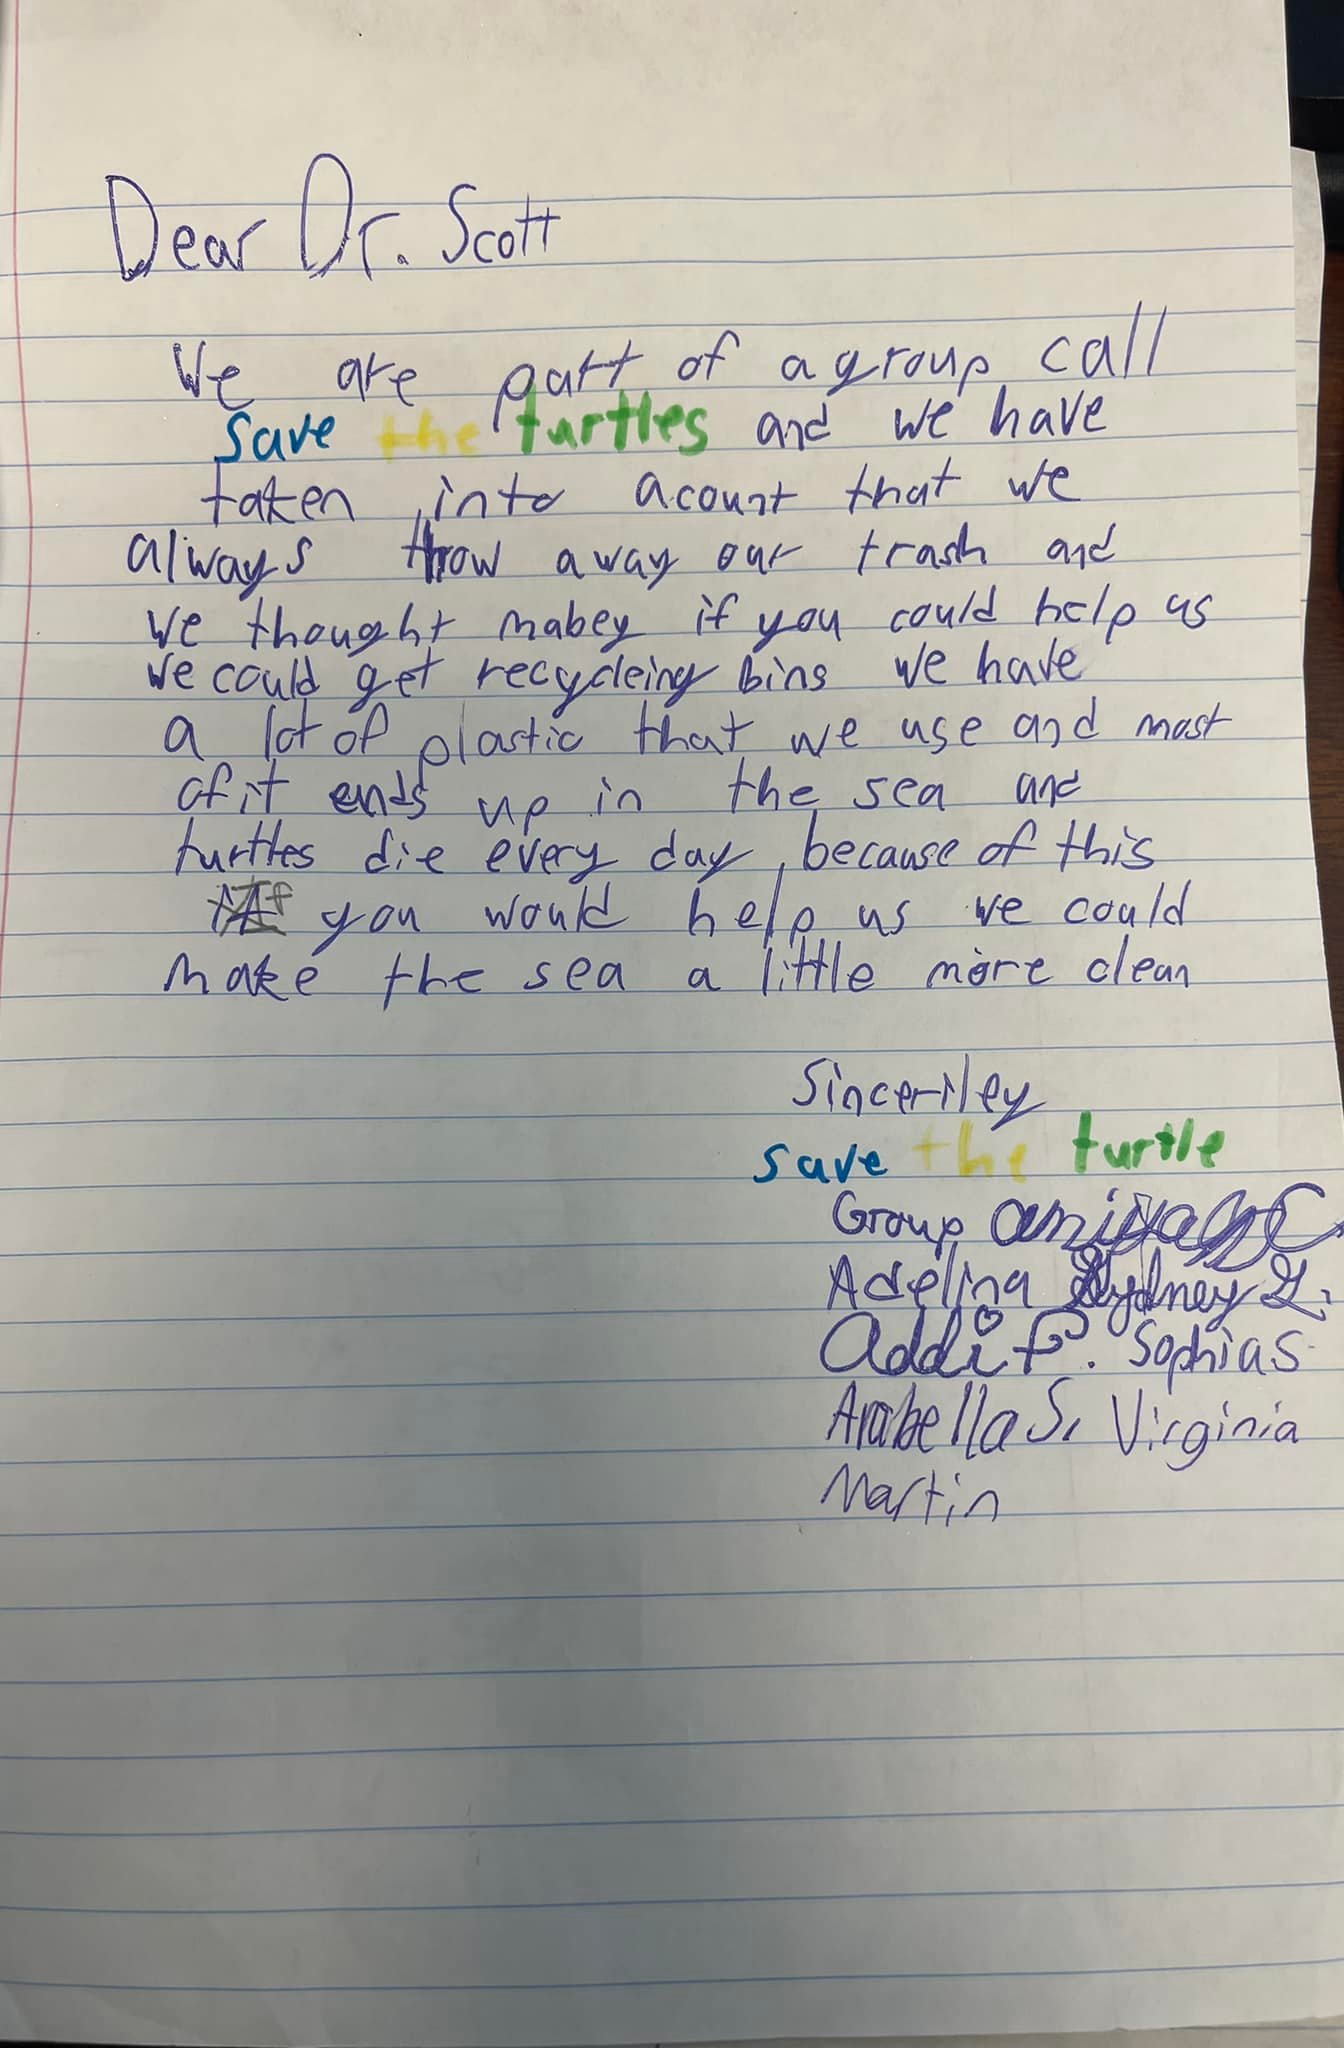 Dear Dr. Scott
We are part of a group call
save the turtles and we have
taken into acount that we
always throw away our trash and
we thought mabey if you could help us
we could get recycleing bins we have
a lot of plastic that we use and most
of it ends up in the sea and
turtles die every day, because of this
if you would help us we could
make the sea a little more clean
Sinceriley
save the turtle
Group
Adelina Sydney Z.
Addi F. Sophia S
Arabella S. Virginia
Martin